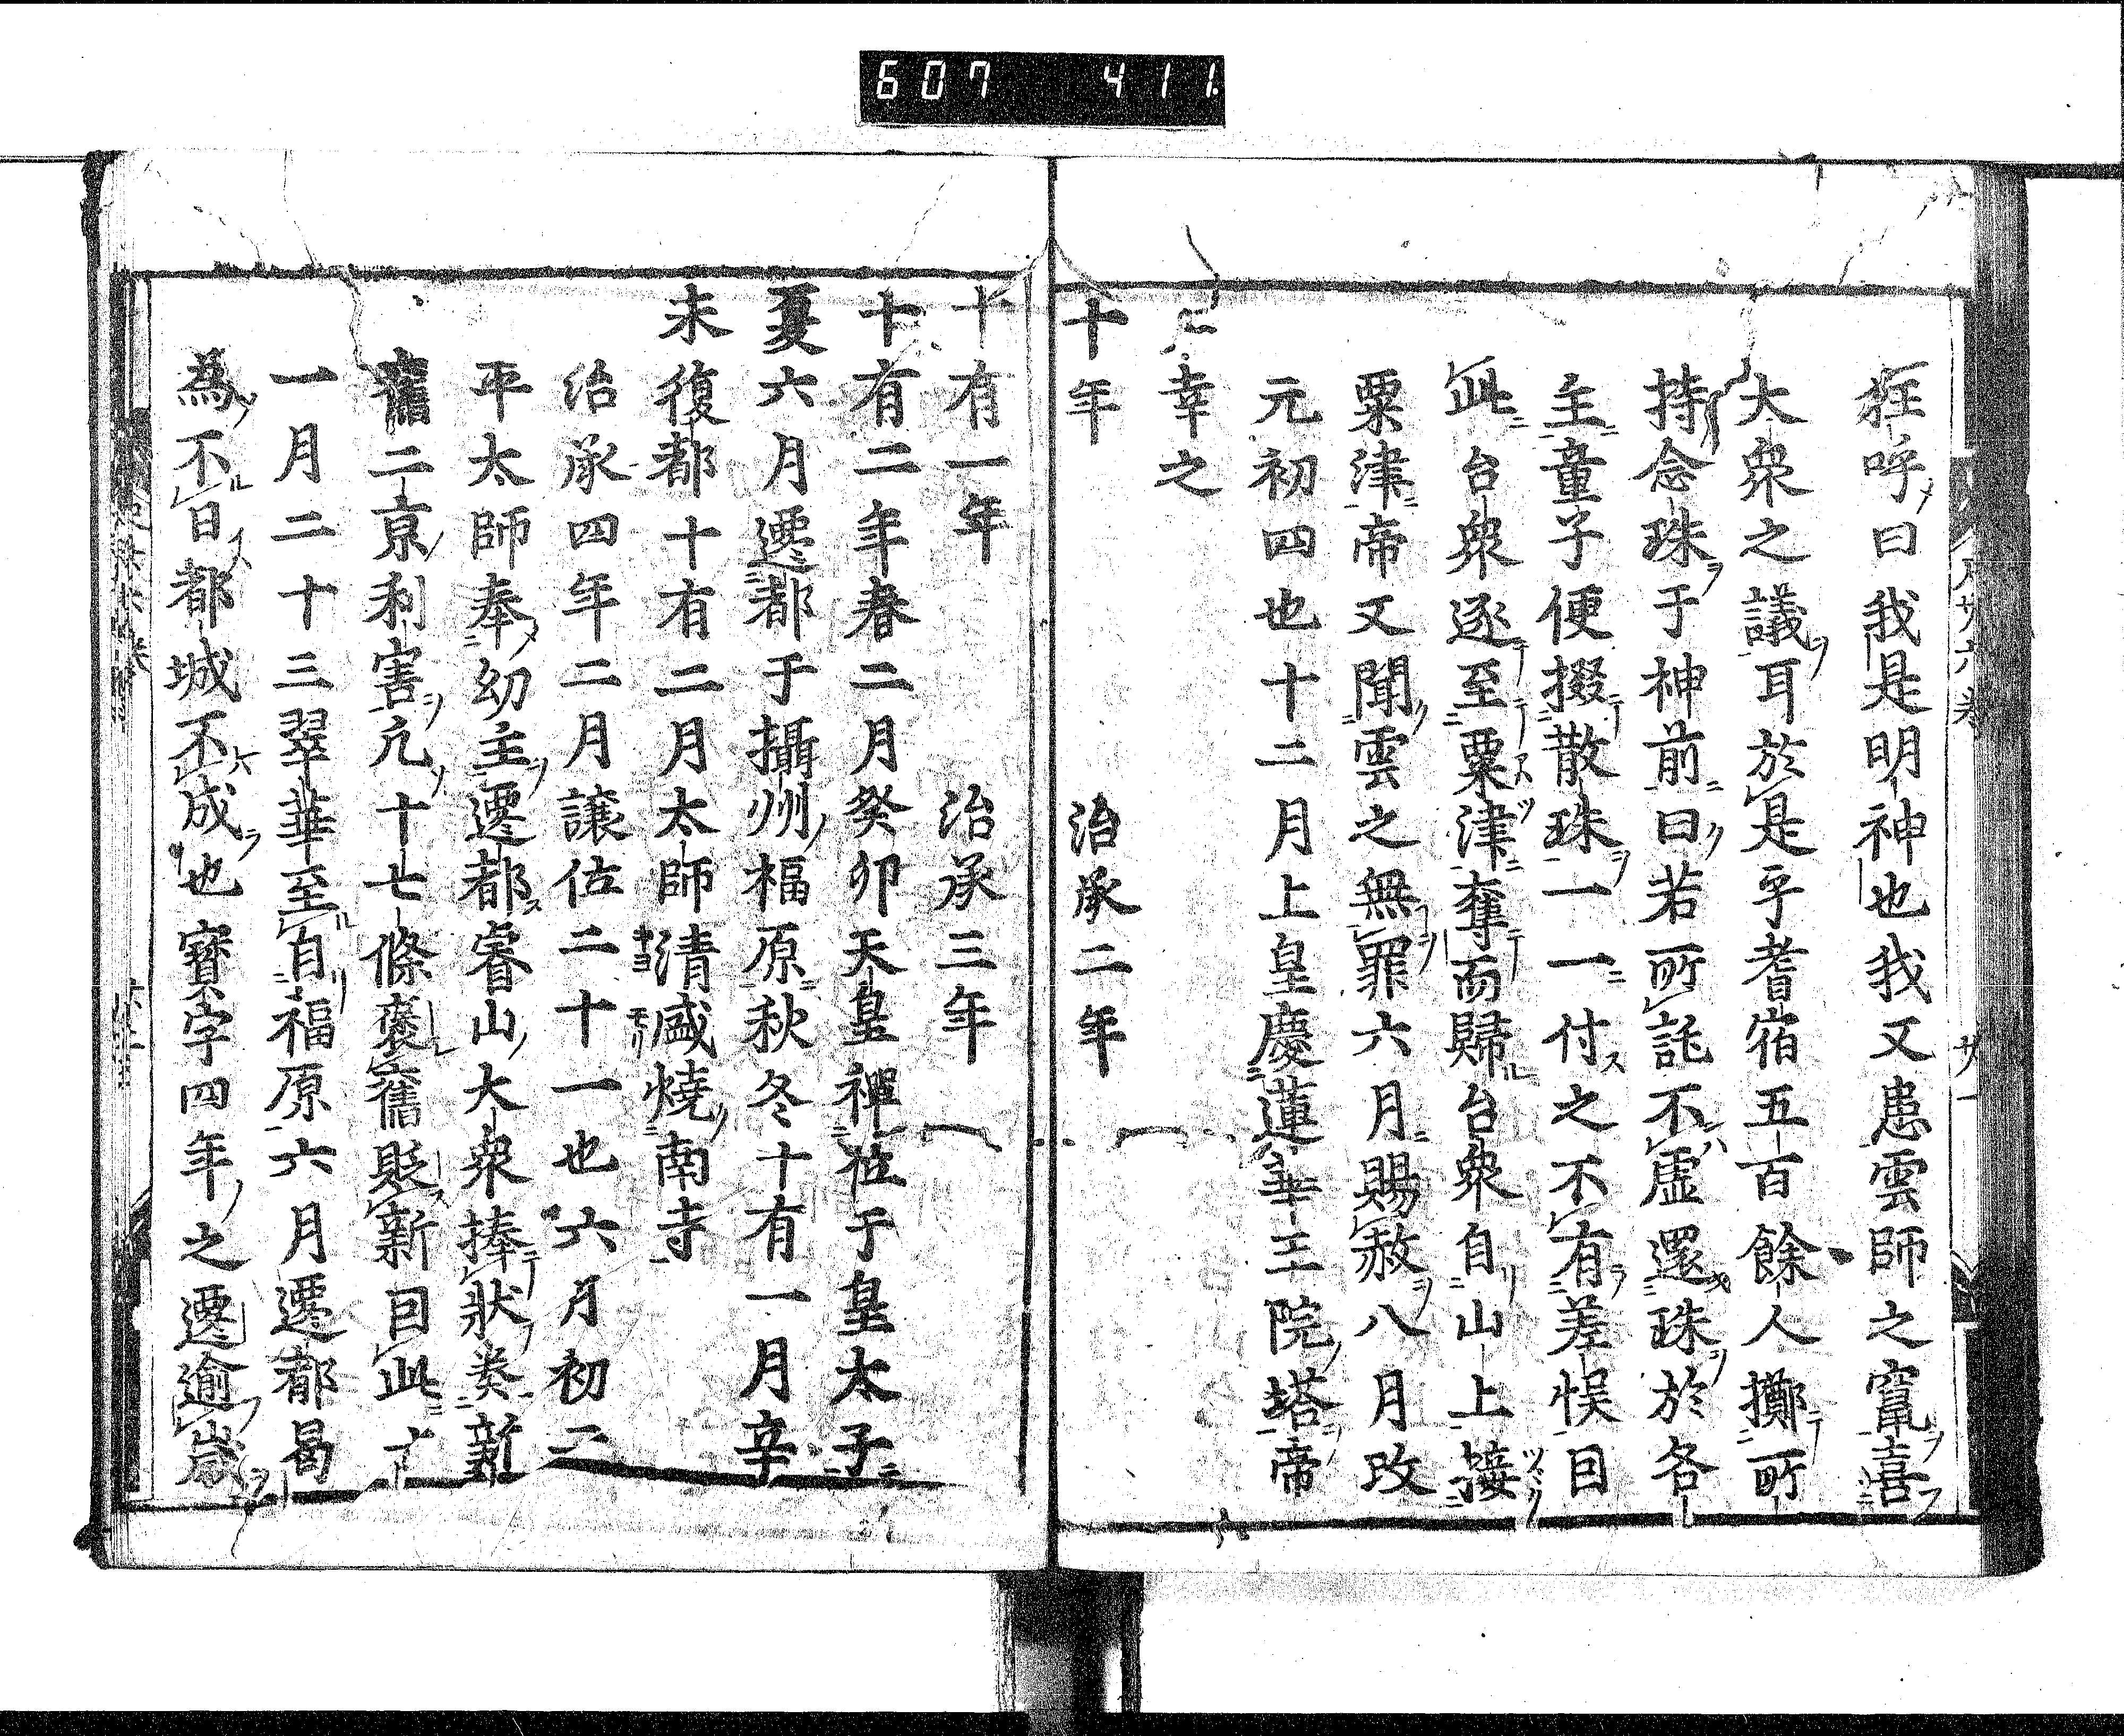 607 411.
狂呼曰我是明神也我又患雲師之竄喜
大衆之議耳於是乎耆宿五百餘人擲所
持念珠于神前曰若所託不虛還珠於各
主童子便掇散珠一一付之不有差悞因
此台衆逐至粟津奪而歸台衆自山上接
粟津帝又聞雲之無罪六月賜赦八月改
元初四也十二月上皇慶蓮華王院塔帝
幸之
十年 治承二年
十有一年 治承三年
十有二年春二月癸卯天皇禪位于皇太子
夏六月遷都于攝州福原秋冬十有一月辛
未復都十有二月太師清盛燒南寺
治承四年二月讓位二十一也六月初二
平太師奉幼主遷都睿山大衆捧狀奏新
舊二京利害凢十七條褒舊貶新因此十
一月二十三翠華至自福原六月遷都曷
為不日都城不成也寶字四年之遷逾歲